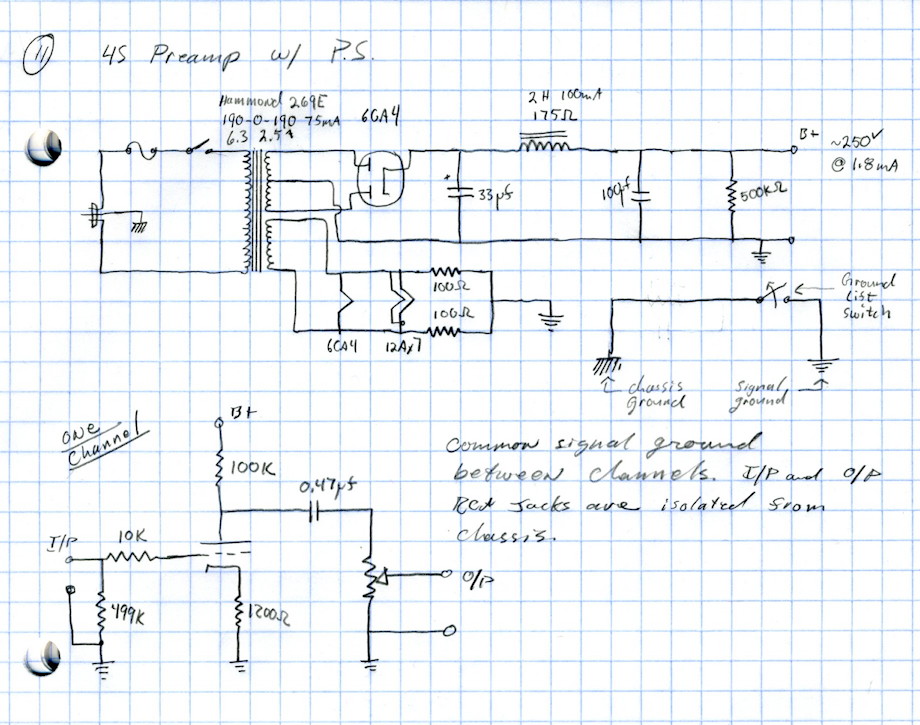 11 4S Preamp w/ P.S.
Hammond 269E
190-0-190 75mA
6.3 2.5A
6CA4
2H 100mA
175Ω
B+
~250V
@ 1.8mA
+
33µf
100µf
500KΩ
100Ω
100Ω
6CA4
12Ax7
Ground
List
Switch
chassis
Ground
signal
ground
one
channel
B+
100K
0.47µf
I/P
10K
499K
1200Ω
O/P
Common signal ground
between channels. I/P and O/P
RCA Jacks are isolated from
chassis.